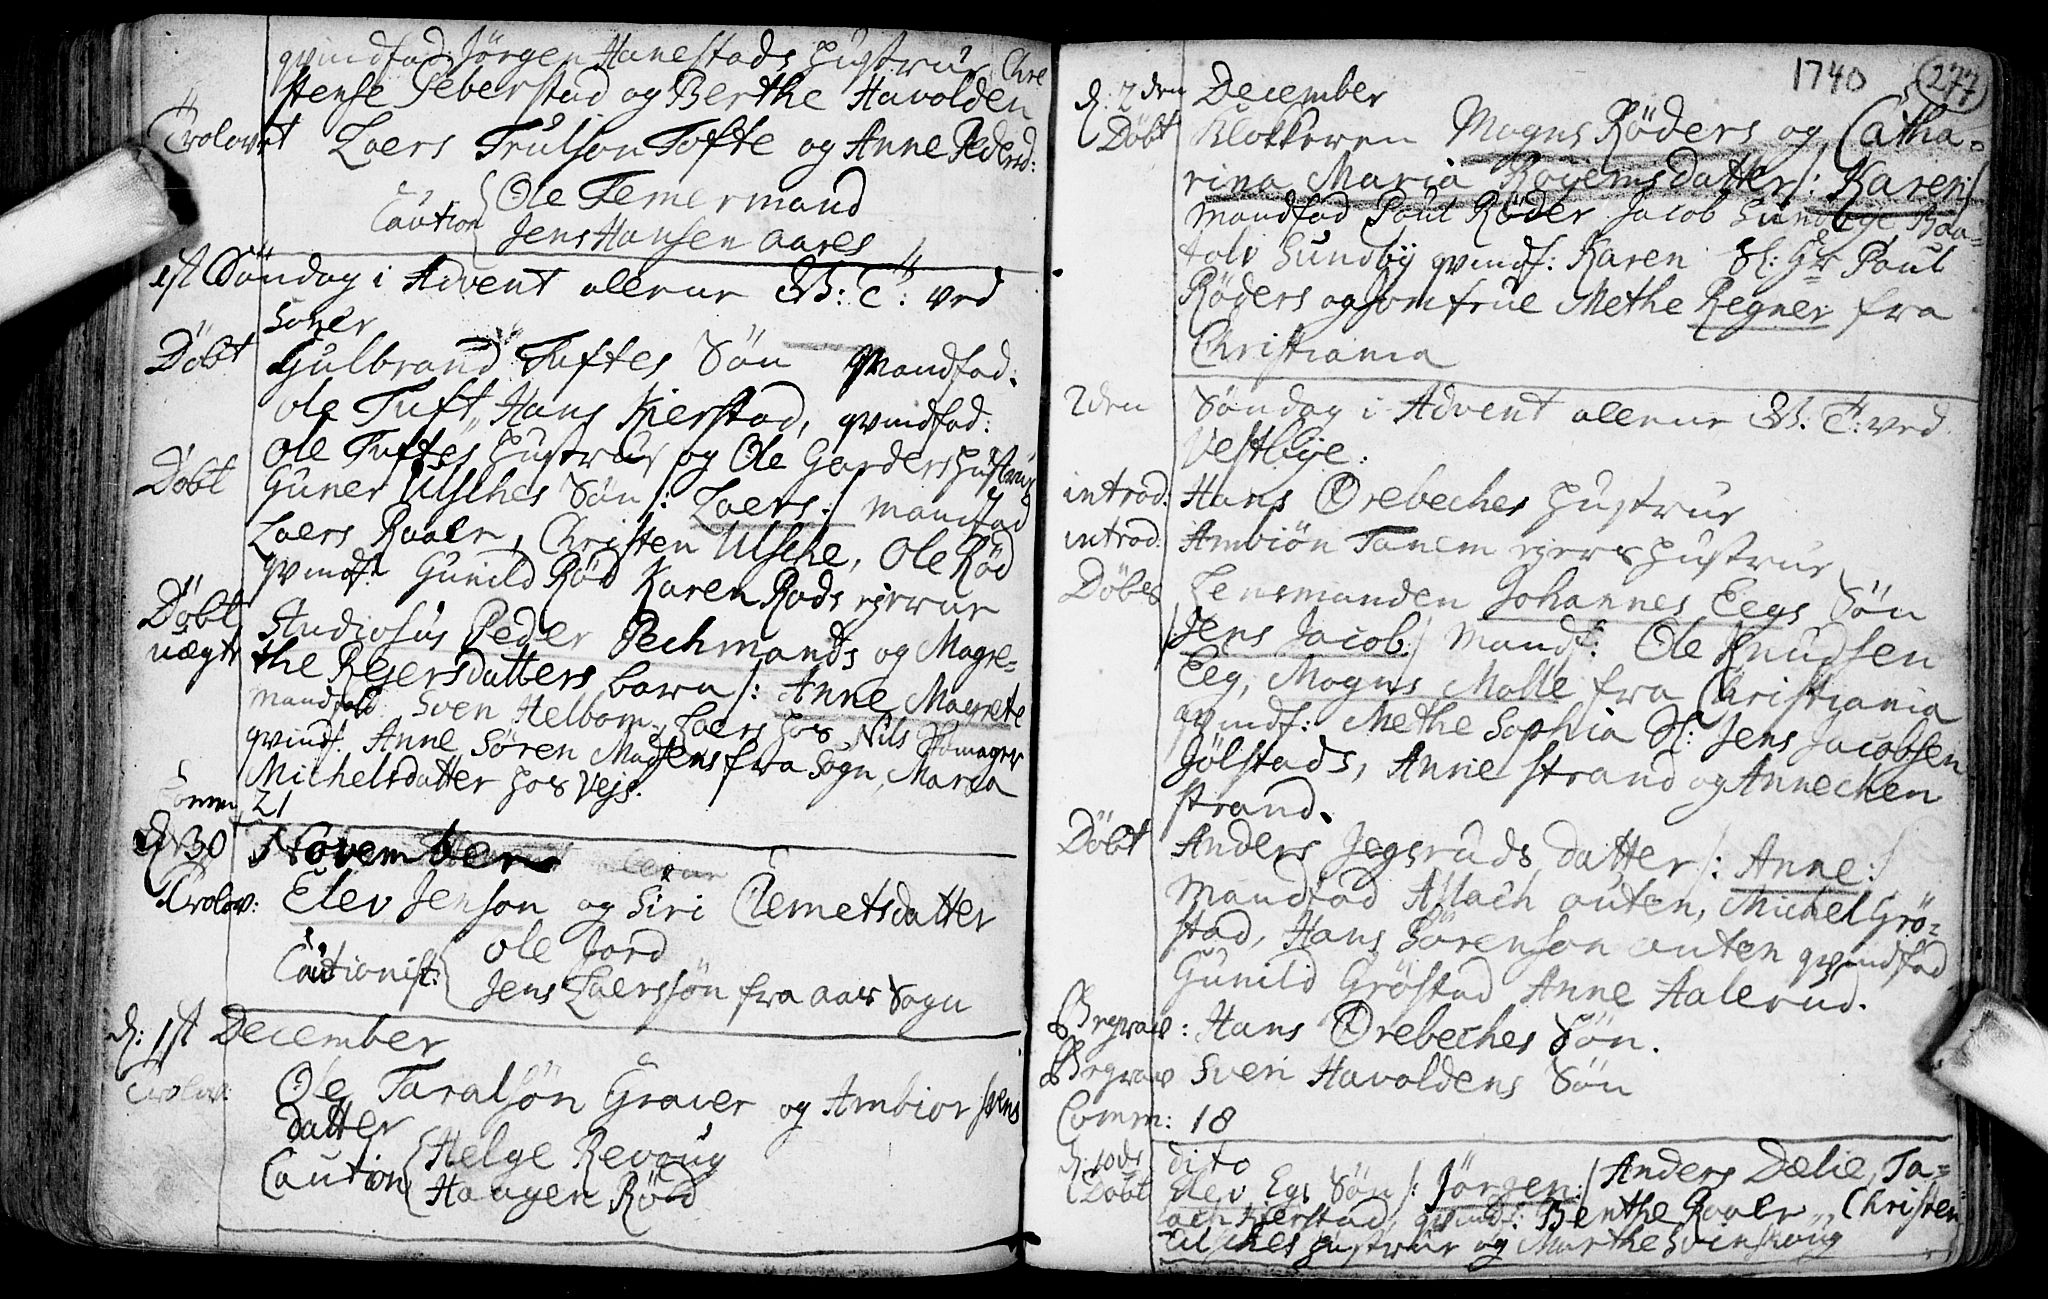 qvindfad: Jörgen Hanestads Hustrue, Chre
stense Feberstad og Berthe Havolden
Trolovet Laers Trulson Tofte og Anne Pedersd:
Caution Ole Temermand
Jens Hansen aares
1st Söndag i Advent allerur B: T: ved
Soner
Döbt Gulbrand Tuftes Sön Mandfad.
Ole Tuft, Hans Kierstad, qvindfad:
Ole Tuftes Hustrue og Ole Garders Hustrue
Döbt Guner Ulsches Sön /: Laers :/ mandfad
Laers Raaer, Christen Ulsche, Ole Röd
qvindf: Gunild Röd Karen Rads
Döbt Studiosus Peder Pechmands og Magre=
uægte the Rejersdatters barn /: Anne Magrete
mandfad Sven Helbom, Laers hos Nils Skomager
qvindf. Anne Sören Madsens fra Sogn, Maria
Michelsdatter hos Vejs.
Comm. 21
d. 30 November
Trolov: Elev Jenson og Siri Clemetsdatter
Cautionist: Ole Jord
Jens Laerssön fra aas Sogn
d: 1st December
Trolov: Ole Taralsön Graver og Ambior Svens
datter
Caution Helge Revoug
Haagen Röd
1740 277
d. 2den December
Döbt Klokkeren Magns Röders og Catha=
rina Maria Rogensdatter /: Karen :/
mandfad Paul Röder Jacob Sundbye Baa=
tolv Sundby qvindf: Karen Sl: Hr Paul
Röders og Jomfrue Methe Regner fra
Christiania
2den Söndag i Advent allerur B. T: ved
Vestbye:
introd: Hans Orebeches Hustrue
introd. Ambiön Tanem Hustrue
Döbes Lensmanden Johannes Eegs Sön
/Jens Jacob:/ mandf: Ole Knudsen
Eeg, Magns Malle fra Christiania
qvindf: Methe Sophia Sl: Jens Jacobsen
Jölstads, Anne strand og Annechen
strand.
Döbt Anders Jegsruds datter /: Anne :/
mandfad Aslach outen, Michel Grö=
stad, Hans Sörenson outen qvindfad
Gunild Gröstad Anne Aalerud.
Begrav: Hans Orebeches Sön.
Begrav Sven Havoldens Sön
Comm: 18
d: 10de dito
Döbt Elev Egs Sön /: Jörgen :/ Anders Dælie, Ta=
lach Kierstad, qvindf: Benthe Raaer, Christen
Ulsches Hustrue og Marthe Svenskoug